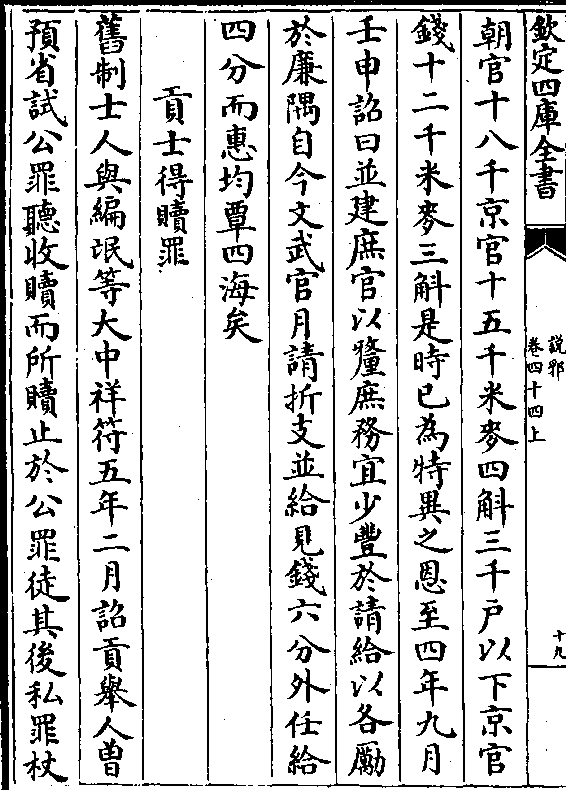 欽定四庫全書
說郛
卷四十四上
十九
朝官十八千京官十五千米麥四斛三千户以下京官
錢十二千米麥三斛是時已為特異之恩至四年九月
壬申詔曰並建庶官以釐庶務宜少豐於請給以各勵
於廉隅自今文武官月請折支並給見錢六分外任給
四分而惠均覃四海矣
貢士得贖罪
舊制士人與編氓等大中祥符五年二月詔貢舉人曽
預省試公罪聽收贖而所贖止於公罪徒其後私罪杖